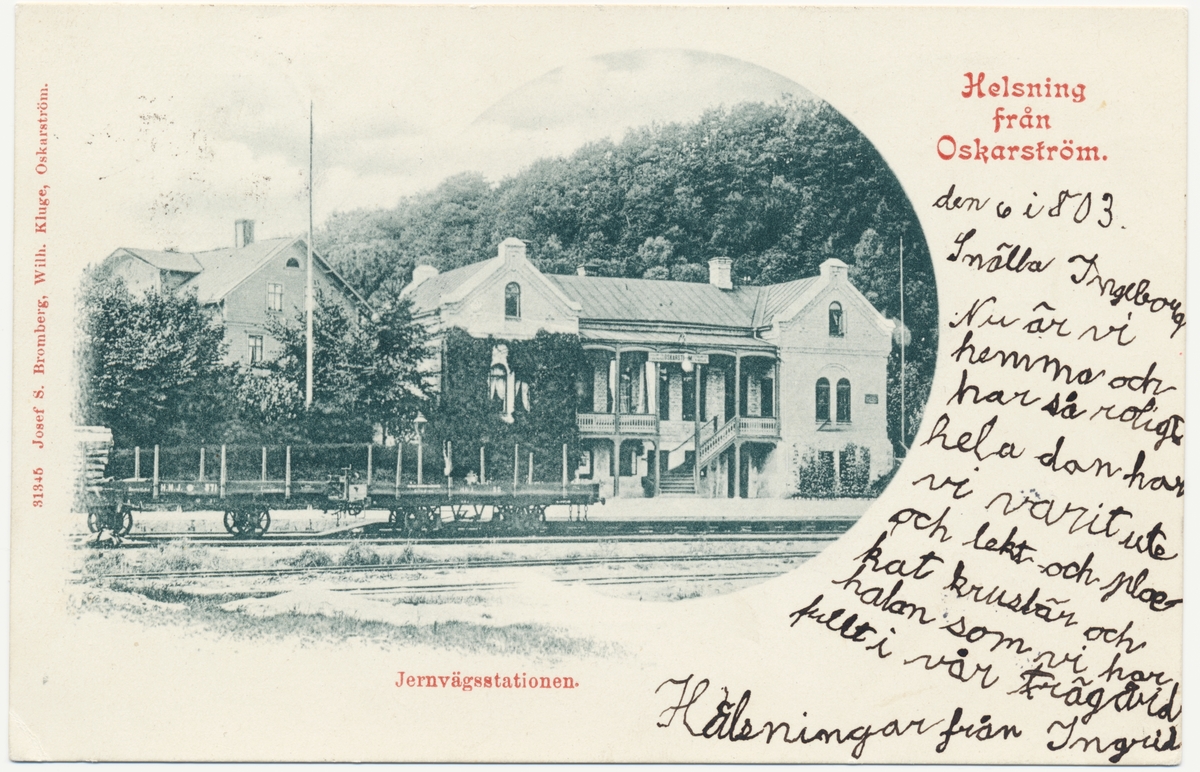 Helsning
från
Oskarström.
den 6 i 803.
Snälla Ingeborg
Nu är vi
hemma och
har så roligt
hela dan har
vi varit ute
och lekt och ploc
kat krusbär och
halon som vi har
fullt i vår trägård
Hälsningar från Ingrid
Jernvägsstationen.
31345 Josef S. Bromberg, Wilh. Kluge, Oskarström.
H.N.J.